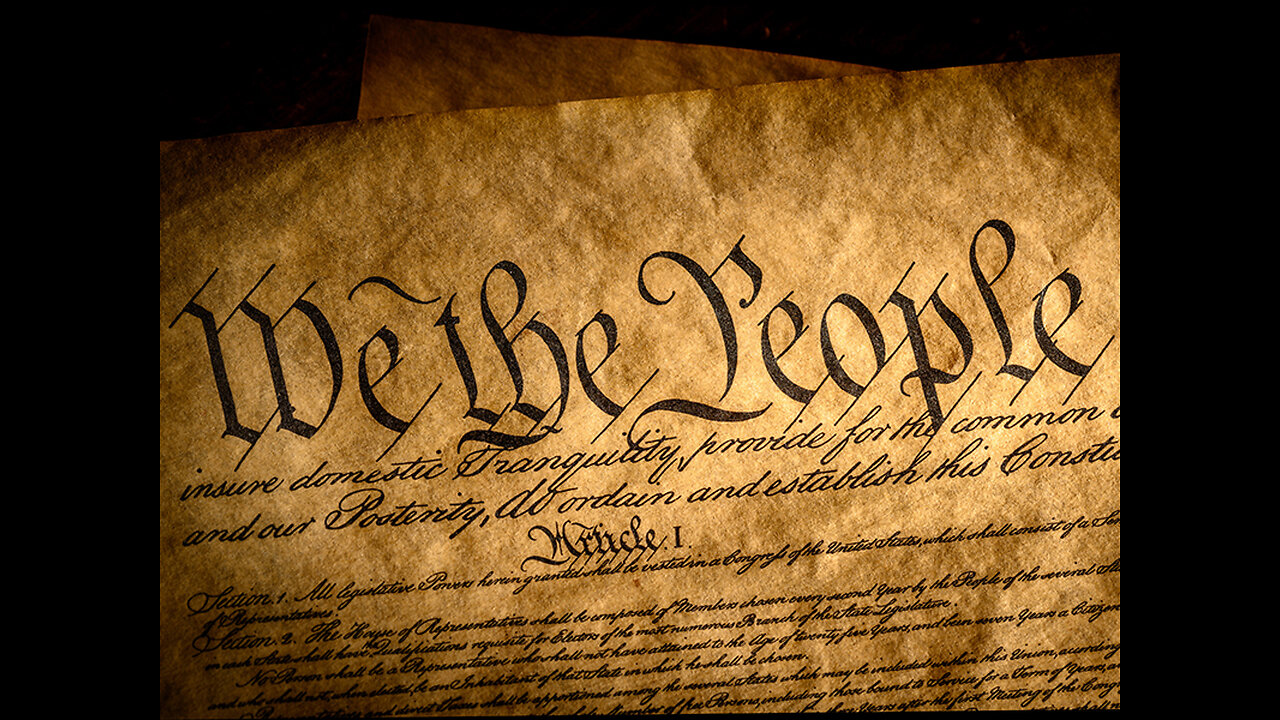 We the People
insure domestic Tranquility, provide for the common
and our Posterity, do ordain and establish this Constitu
Article. I.
Section. 1. All legislative Powers herein granted shall be vested in a Congress of the United States, which shall consist of a Sen
of Representatives.
Section. 2. The House of Representatives shall be composed of Members chosen every second Year by the People of the several Sta
in each State shall have the Qualifications requisite for Electors of the most numerous Branch of the State Legislature.
No Person shall be a Representative who shall not have attained to the Age of twenty five Years, and been seven Years a Citizen
and who shall not, when elected, be an Inhabitant of that State in which he shall be chosen.
Representatives and direct Taxes shall be apportioned among the several States which may be included within this Union, according
Number of free Persons, including those bound to Service for a Term of Years, an
Years after the first Meeting of the Cong